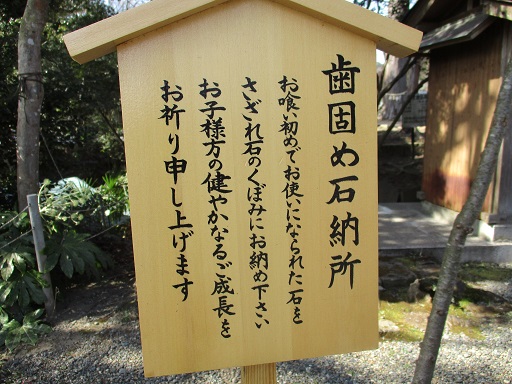 歯固め石納所
お喰い初めでお使いになられた石を
さざれ石のくぼみにお納め下さい
お子様方の健やかなるご成長を
お祈り申し上げます